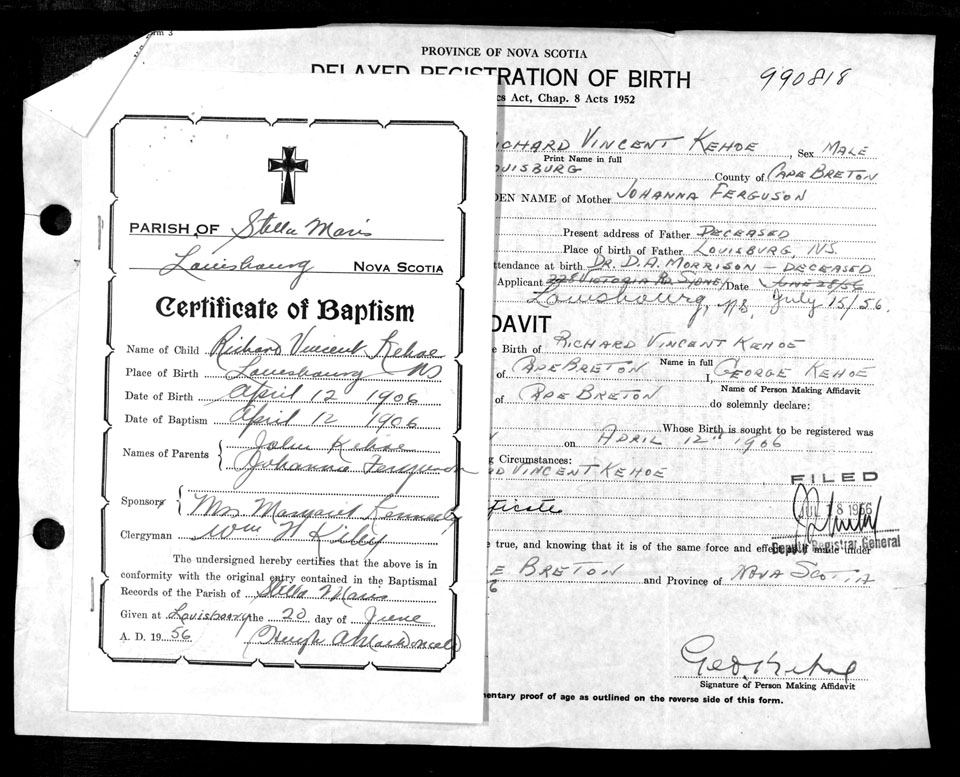 PARISH OF Stella Maris
Louisbourg NOVA SCOTIA
Certificate of Baptism
Name of Child Richard Vincent Kehoe
Place of Birth Louisbourg NS
Date of Birth April 12 1906
Date of Baptism April 12 1906
Names of Parents John Kehoe
Johanna Ferguson
Sponsors Mrs Margaret Kennedy
Clergyman Wm Kiely
The undersigned hereby certifies that the above is in
conformity with the original entry contained in the Baptismal
Records of the Parish of Stella Maris
Given at Louisbourg the 20 day of June
A. D. 19 56 Hugh A MacDonald
m 3
PROVINCE OF NOVA SCOTIA
DELAYED REGISTRATION OF BIRTH 990818
cs Act, Chap. 8 Acts 1952
ICHARD VINCENT KEHOE, Sex MALE
Print Name in full
OUISBURG County of CAPE BRETON
DEN NAME of Mother JOHANNA FERGUSON
Present address of Father DECEASED
Place of birth of Father LOUISBURG, NS.
ttendance at birth DR. D. A. MORRISON - DECEASED
Applicant 228 VICTORIA RD. SYDNEY Date JUNE 28/56
Louisbourg, N.S. July 15/56.
DAVIT
e Birth of RICHARD VINCENT KEHOE
Name in full
of CAPE BRETON I, GEORGE KEHOE
Name of Person Making Affidavit
of CAPE BRETON do solemnly declare:
Whose Birth is sought to be registered was
on APRIL 12th 1906
g Circumstances:
RD VINCENT KEHOE
FILED
JUL 18 1956
Deputy Registrar General
ificate
e true, and knowing that it is of the same force and effect made under
E BRETON and Province of NOVA SCOTIA
6
Geo Kehoe
Signature of Person Making Affidavit
mentary proof of age as outlined on the reverse side of this form.